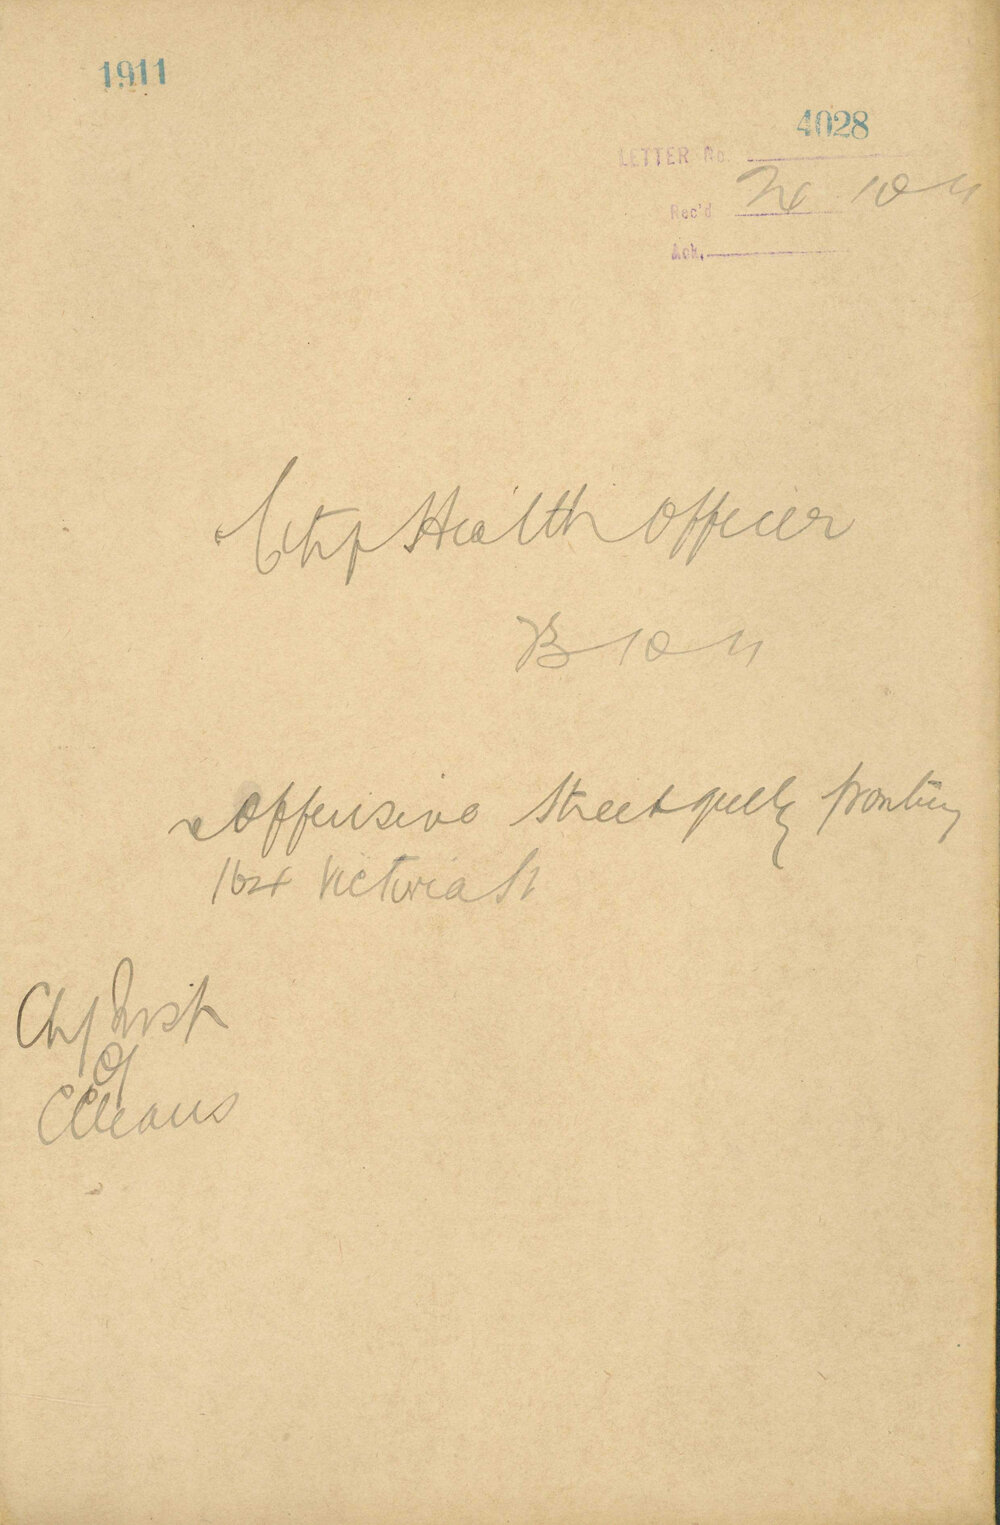 1911
4028
LETTER No.
Rec'd 24 10 11
Ack.
City Health Officer
23 10 11
re Offensive Street gully fronting
164 Victoria St
Chf Insp
of
Cleans